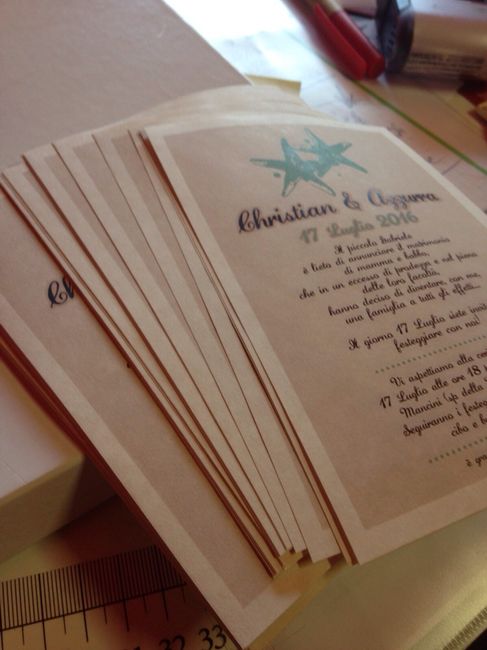 Christian & Azzurra
17 Luglio 2016
Il piccolo Gabriele
è lieto di annunciare il matrimonio
di mamma e babbo,
che in un eccesso di prodezza e nel pieno
delle loro facoltà,
hanno deciso di diventare, con me,
una famiglia a tutti gli effetti...
Il giorno 17 Luglio siete invi
festeggiare con noi!
Vi aspettiamo alla
17 Luglio alle ore 18
Mancini (gp della
Seguiranno i festeg
cibo e b
è gra
Ch
32 33